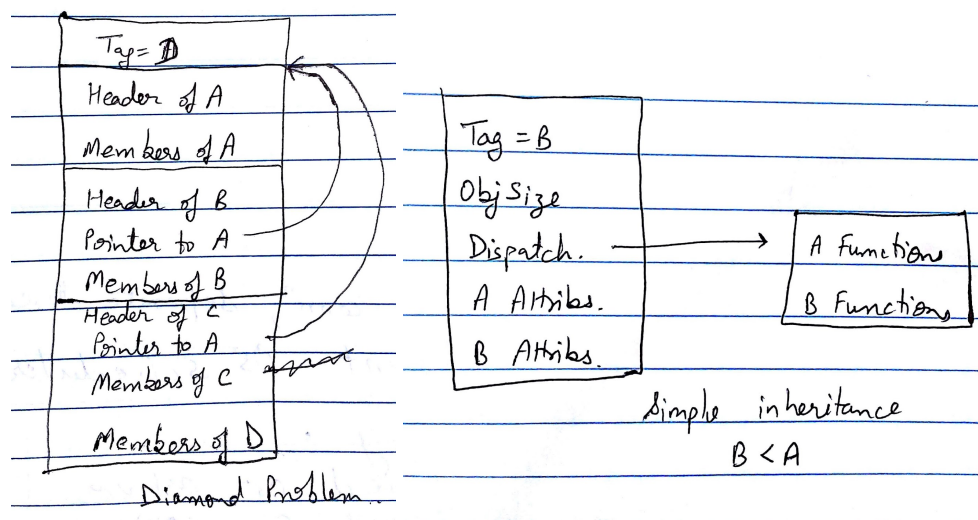 Tag = D
Header of A
Members of A
Header of B
Pointer to A
Members of B
Header of C
Pointer to A
Members of C
Members of D
Diamond Problem.
Tag = B
Obj Size
Dispatch.
A Attribs.
B Attribs.
A Functions
B Functions
Simple inheritance
B < A